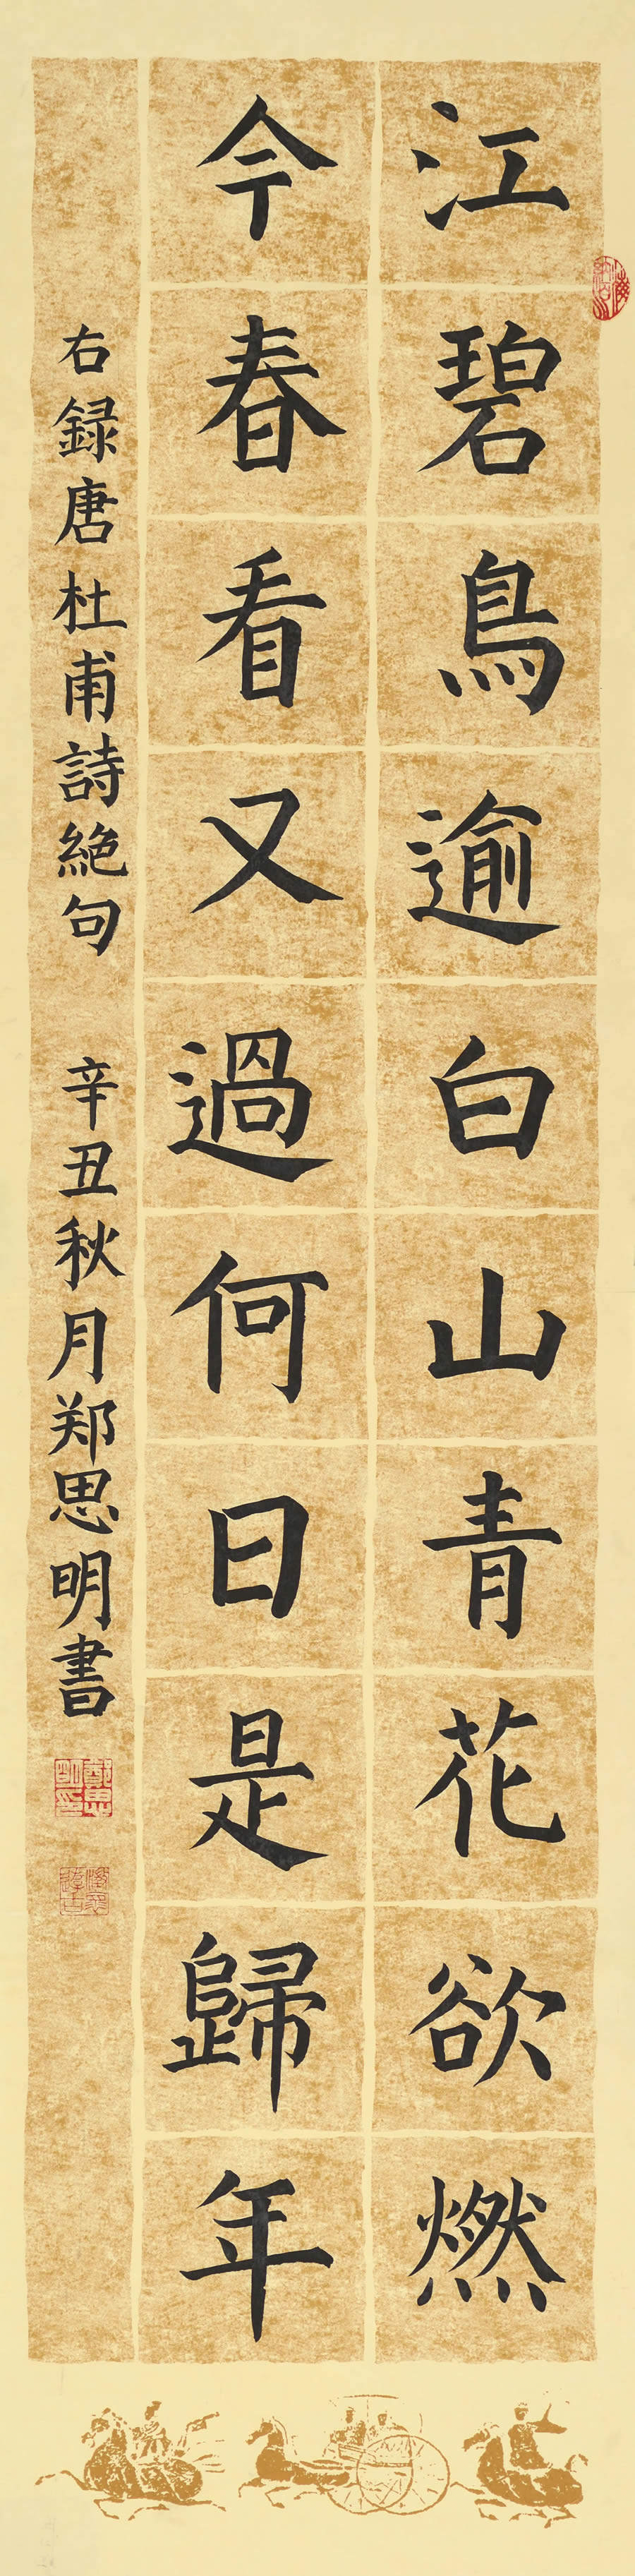 江碧鳥逾白山青花欲燃
今春看又過何日是歸年
右録唐杜甫詩絕句 辛丑秋月郑思明書